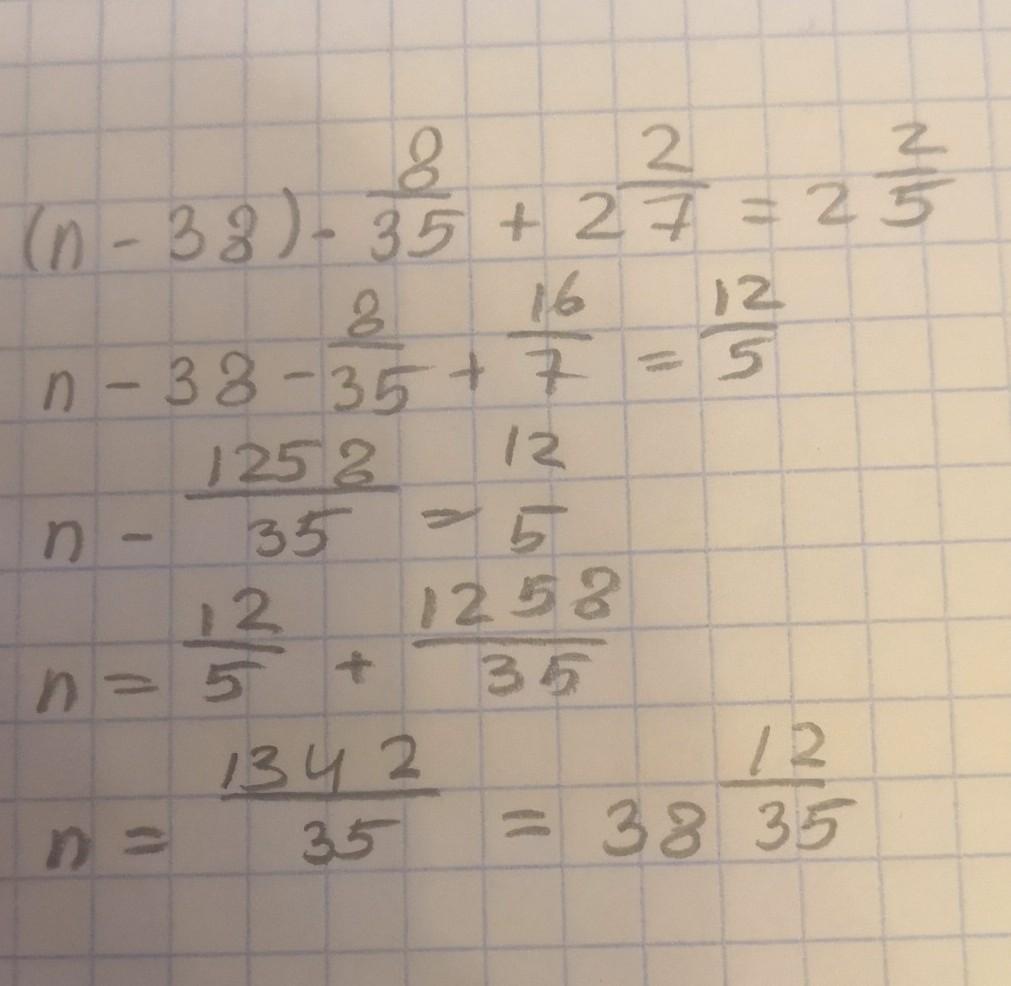 (n - 38) - 8/35 + 2 2/7 = 2 2/5
n - 38 - 8/35 + 16/7 = 12/5
n - 1258/35 = 12/5
n = 12/5 + 1258/35
n = 1342/35 = 38 12/35